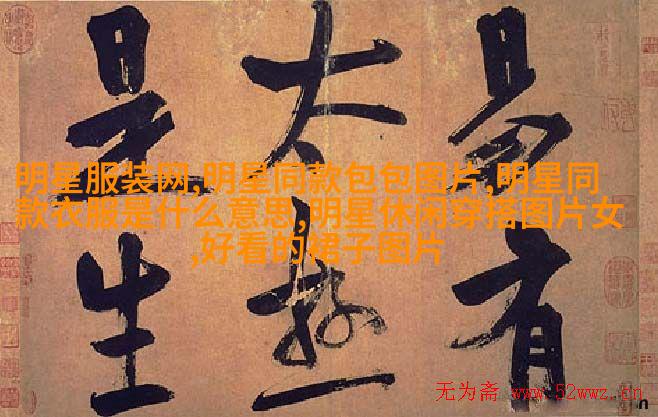 易有
太極
是生
明星服装网,明星同款包包图片,明星同
款衣服是什么意思,明星休闲穿搭图片女
,好看的裙子图片
无为斋 www.52wwz.cn
n